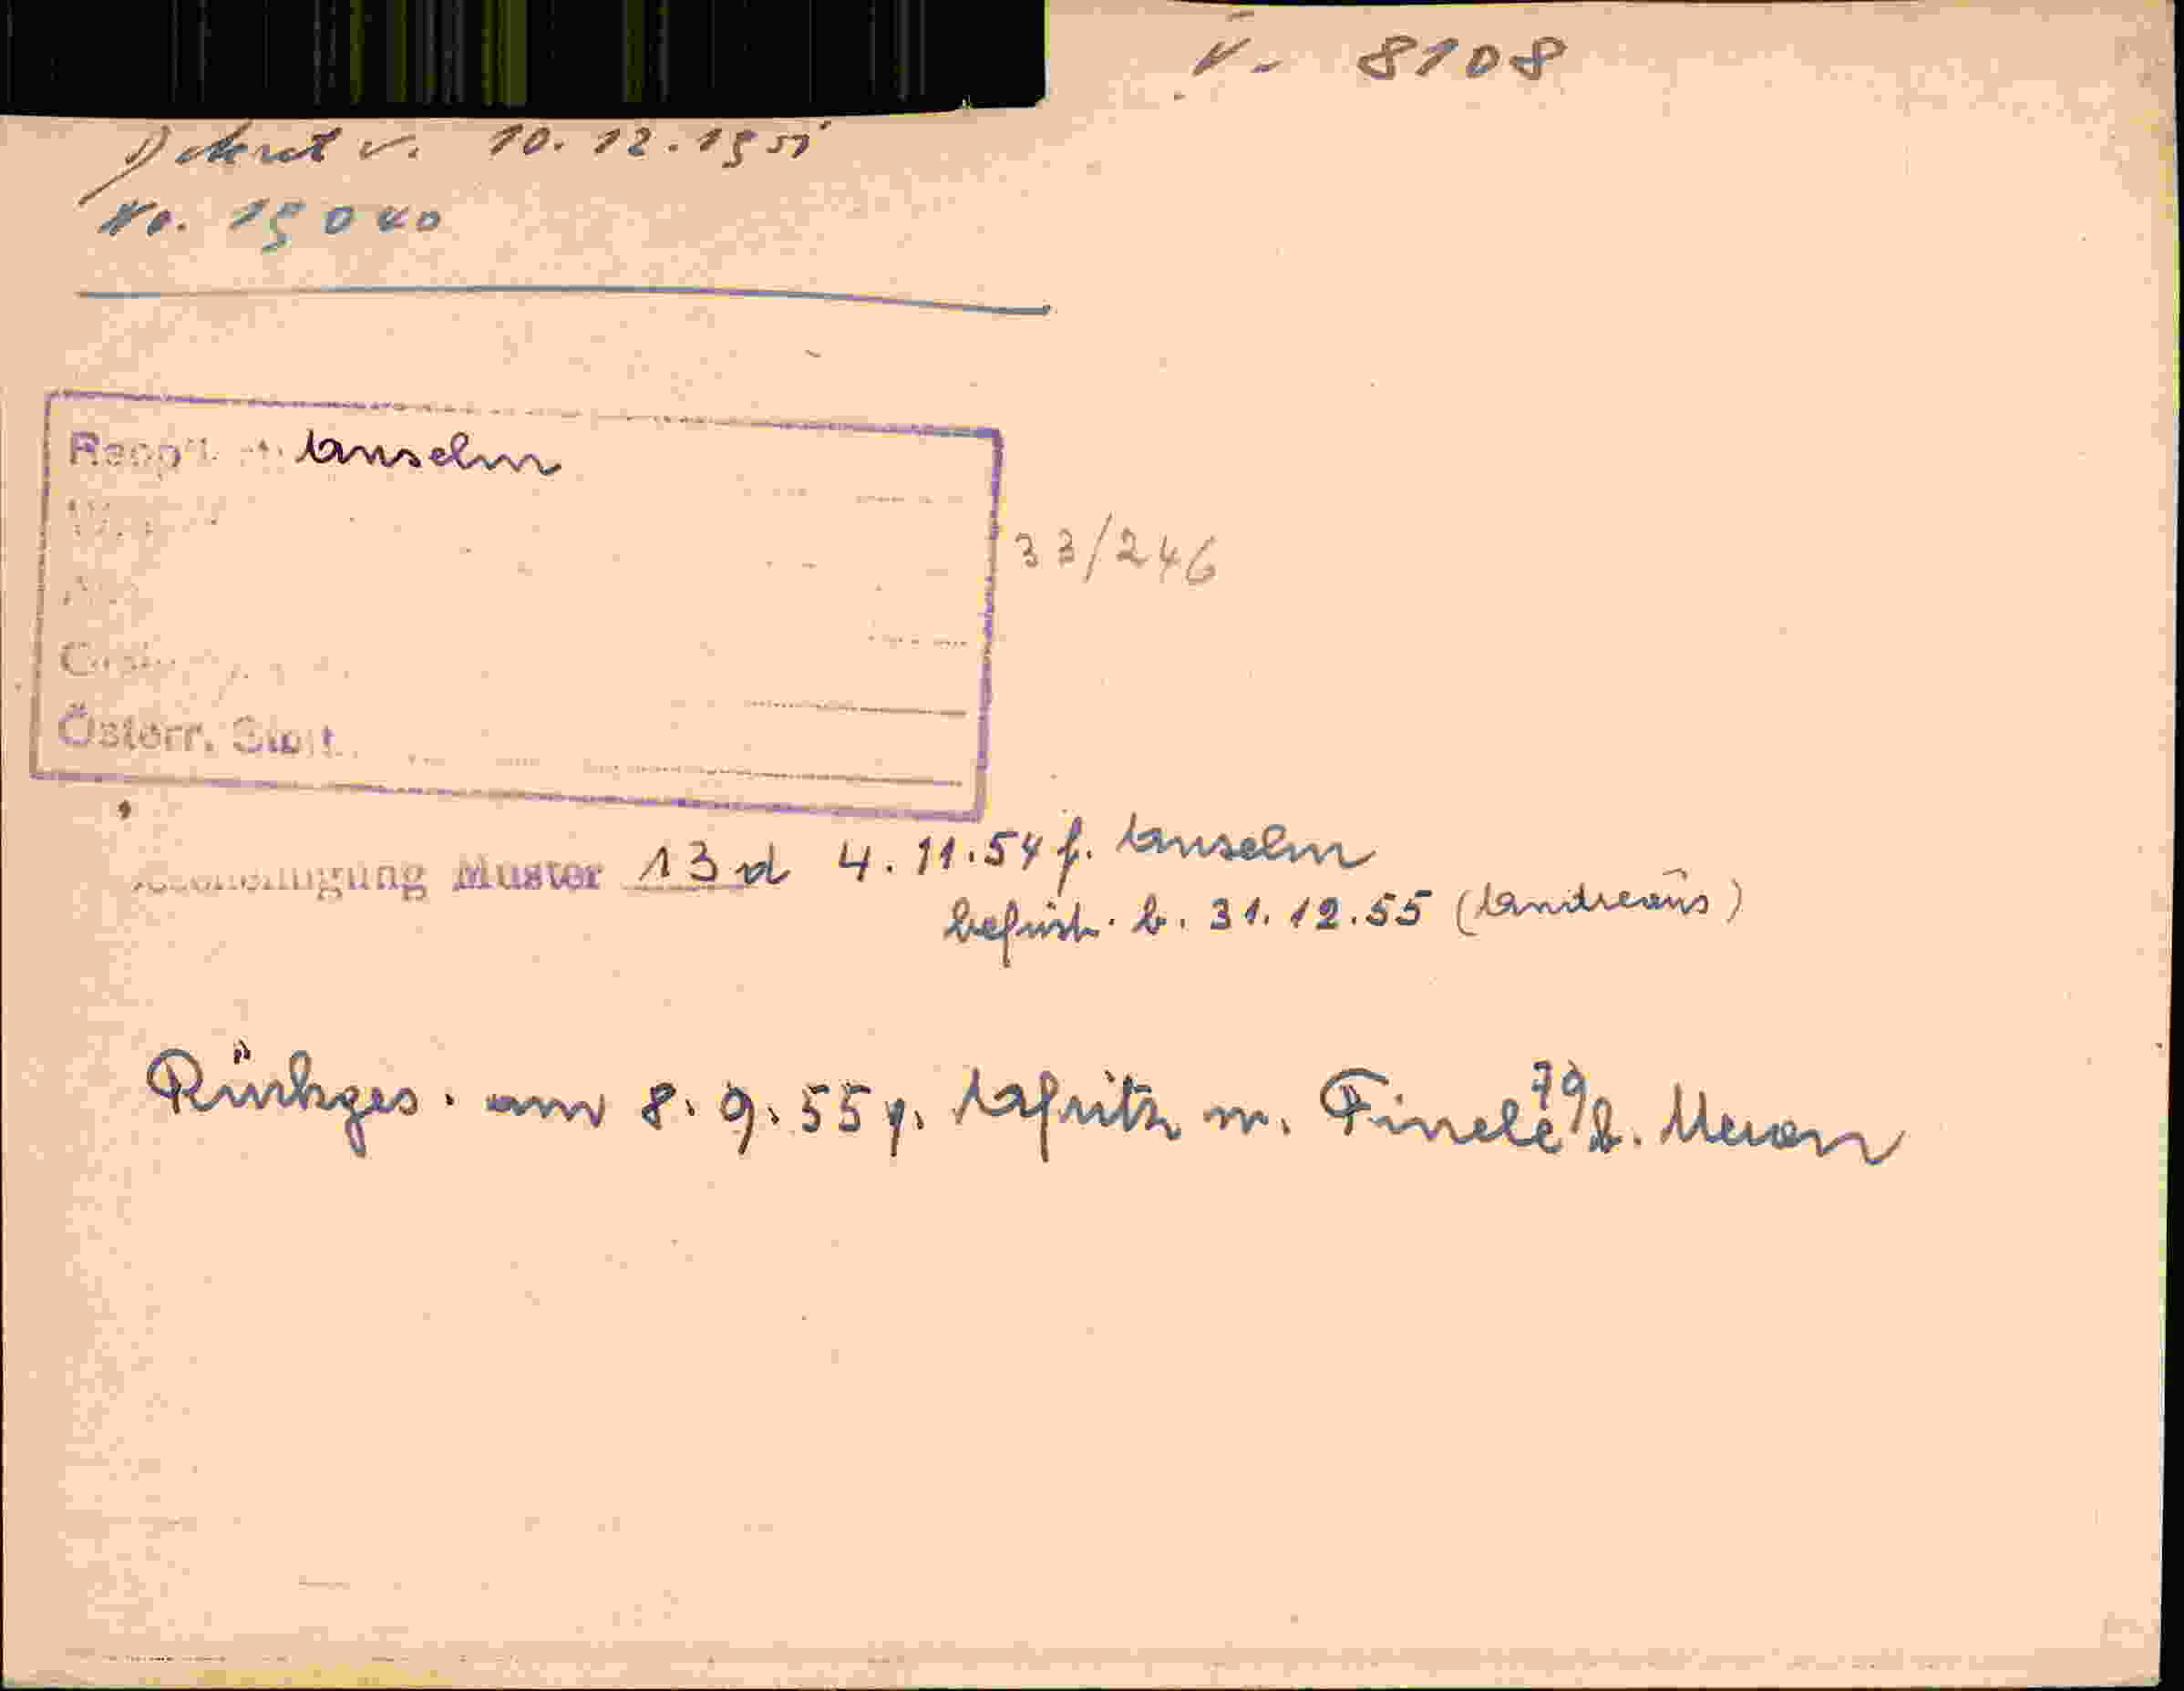 V- 8108
Dekret v. 10.12.1951
No. 19040
Anselm
33/246
Österr. Stbft.
Bescheinigung Muster 13d 4.11.54 f. Anselm
befrist. b. 31.12.55 (Andreaus)
Rückges. am 8.9.55 y. Afritz m. Finele 79 b. Meran